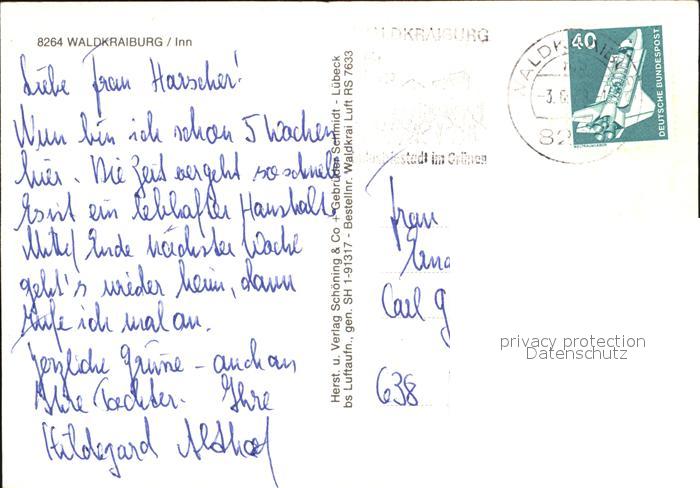 8264 WALDKRAIBURG / Inn
Liebe Frau Harscher!
Nun bin ich schon 5 Wochen
hier. Die Zeit vergeht so schnell.
Es ist ein lebhafter Haushalt.
Mitte/Ende nächster Woche
geht's wieder heim, dann
rufe ich mal an.
Herzliche Grüsse – auch an
Ihre Tochter. Ihre
Hildegard Althof
Herst. u. Verlag Schöning & Co + Gebrüder Schmidt - Lübeck
bs Luftaufn., gen. SH 1-91317 - Bestellnr. Waldkrai Luft RS 7633
WALDKRAIBURG
stadt im Grünen
WALDKRAIBURG
-3.6
82
40
DEUTSCHE BUNDESPOST
Frau
Carl G
638
privacy protection
Datenschutz